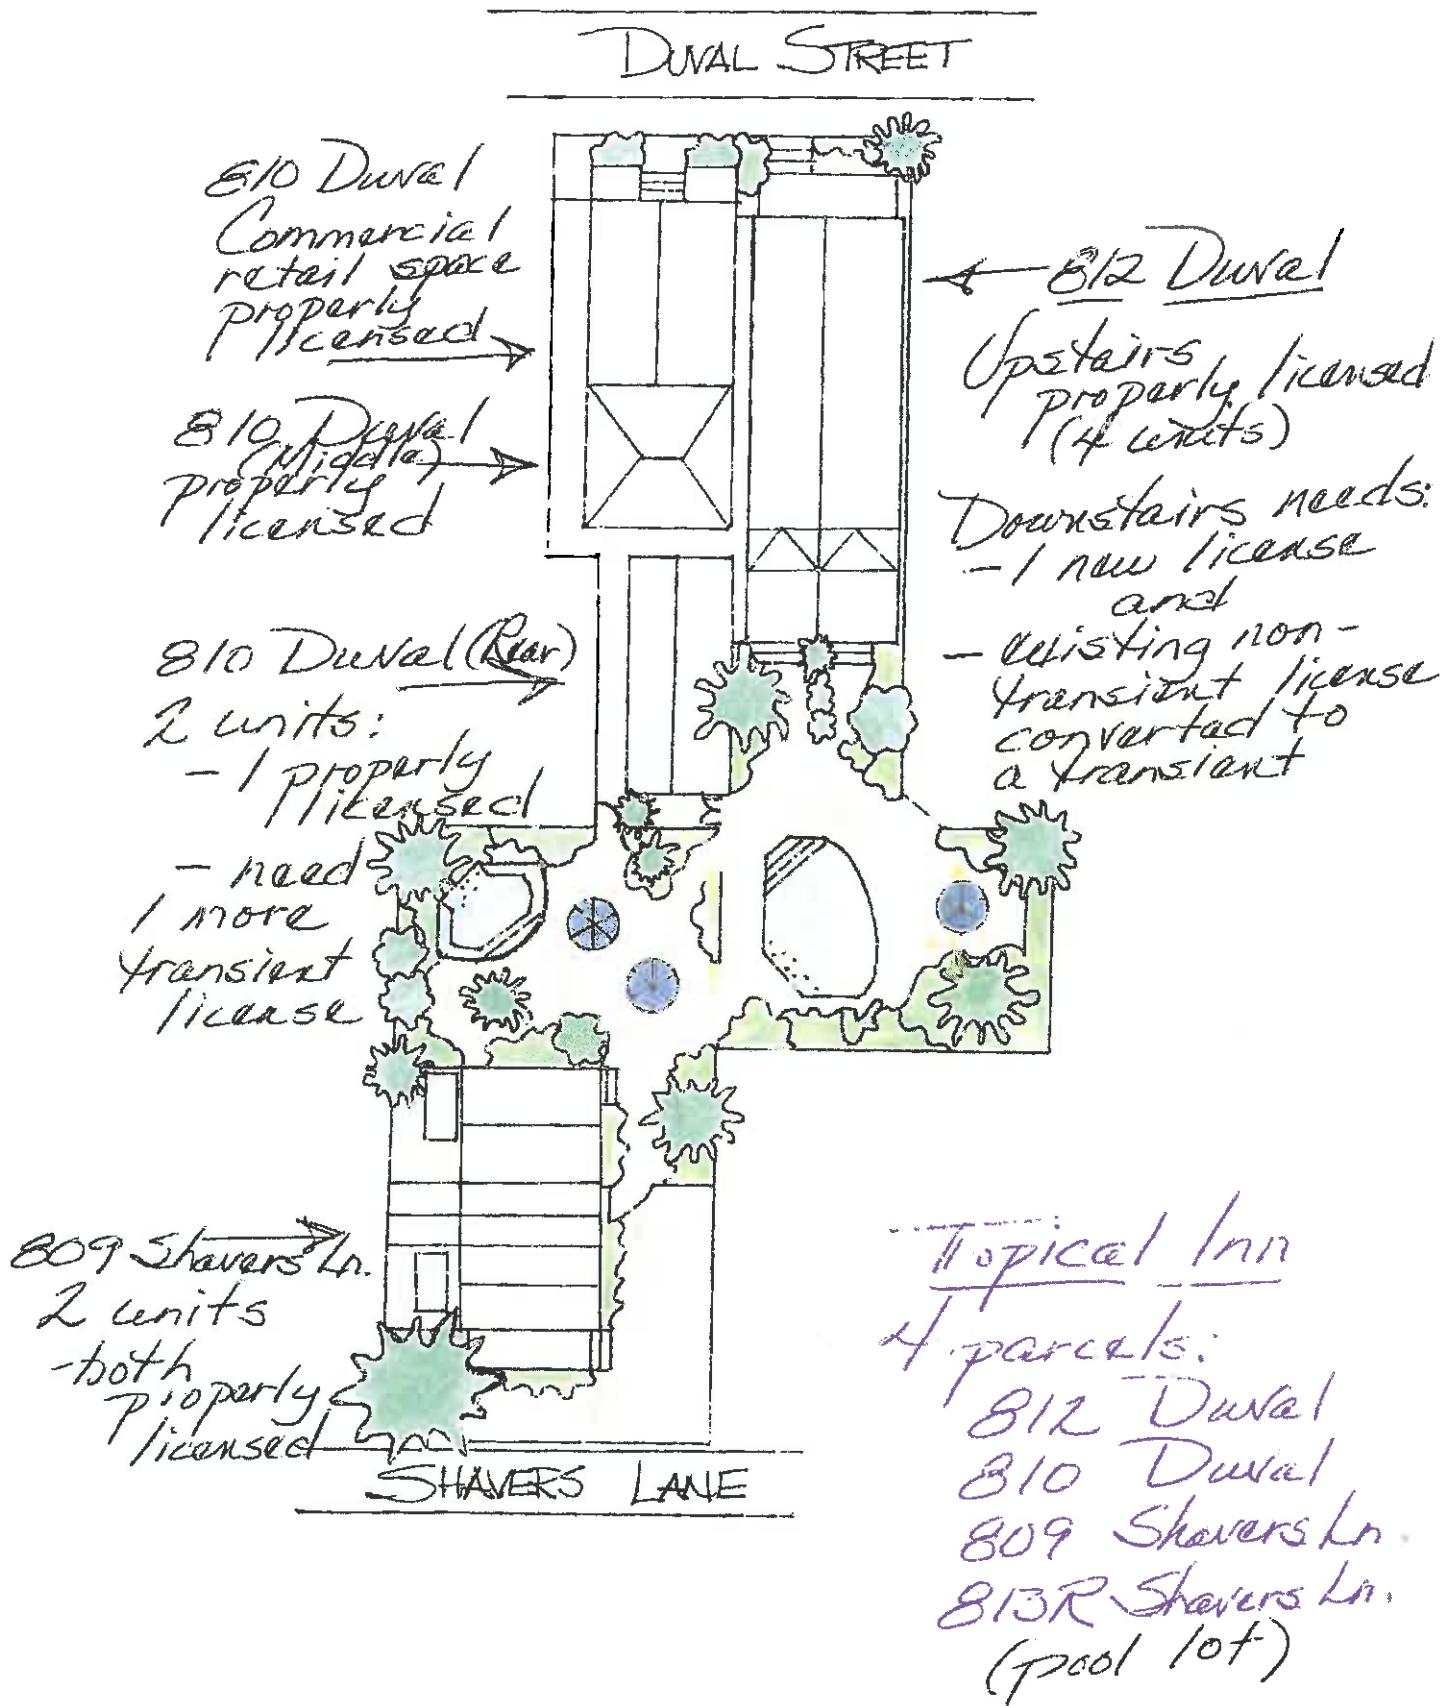 DUVAL STREET
810 Duval
Commercial
retail space
properly
licensed
810 Duval
(Middle)
properly
licensed
810 Duval (Rear)
2 units:
- 1 properly
licensed
- need
1 more
transient
license
809 Shavers Ln.
2 units
- both
properly
licensed
812 Duval
Upstairs
properly licensed
(4 units)
Downstairs needs:
- 1 new license
and
- existing non-
transient license
converted to
a transient
SHAVERS LANE
Topical Inn
4 parcels:
812 Duval
810 Duval
809 Shavers Ln.
813R Shavers Ln.
(pool lot)